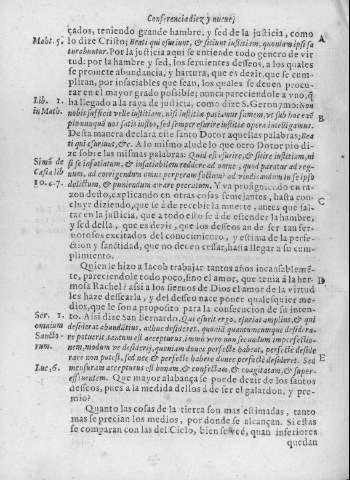 Conferencia diez y nueve,
çados, teniendo grande hambre, y sed de la justicia, como
Matt. 5. lo dize Cristo; Beati qui esuriunt, & sitiunt iustitiam, quoniam ipsi sa
turabuntur. Por la justicia aqui se entiende todo genero de vir
tud: por la hambre y sed, los feruientes desseos, a los quales
se promete abundancia, y hartura, que es dezir, que se cum-
pliran, por insaciables que sean, los quales se deuen procu-
rar en el mayor grado possible; nunca pareciendole a vno, q̃
Lib. 1. ha llegado a la raya de justicia, como dize S. Geronymo: Non
in Math. nobis sufficit velle iustitiam, nisi iustitiæ patiamur famem, vt sub hoc exẽ
plo nunquã nos satis iustos, sed semper esurire iustitiæ opera intelligamus.
Desta manera declara este santo Dotor aquellas palabras; Bea
ti qui esuriunt, &c. A lo mismo alude lo que otro Dotor pio di
ze sobre las mismas palabras: Quid est esurire, & sitire iustitiam, ni
Simõ de si se insatiatum, & insatiabilem reddere ad omne, quod paratur ad reg-
Casia lib num, ad corrigendum omne perperam factum: ad vindicandum in se ipso
10. c. 7. delictum, & puniendum amare peccatum. Y va prosiguiendo en ra-
zon desto, explicando en otras cosas semejantes, hasta con-
C
cluyr diziendo, que le à de recebir la muerte, antes que fal-
tar en la justicia, que a todo esto se à de estender la hambre,
y sed della, que es dezir, que los desseos an de ser tan fer-
uorosos excitados del conocimiento, y estima de la perfe-
ction y sanctidad, que no dexen cessar, hasta llegar a su cum-
plimiento.
Quien le hizo a Iacob trabajar tantos años incansablemẽ-
te, pareciendole todo poco, sino el amor, que tenia à la her-
D
mosa Rachel? assi a los sieruos de Dios el amor de la virtud
les haze dessearla, y del desseo nace poner qualesquier me-
dios, que le son a proposito para la consecucion de su inten-
Ser. 1. to. Assi dize San Bernardo. Qui esurit ergo, esuriat amplius, & qui
omnium desiderat abundãtius, adhuc desideret, quoniã quantumcumque desidera-
Sancto- re potuerit, tantum est accepturus, immò vero non secundum imperfectio-
rum. nem, modum ve desiderij, quoniam donec perfectè habeat, perfectè deside
rare non potest, sed nec & perfectè habere donec perfectè desideret. Sed
E
Luc. 6. mensuram accepturus est bonam, & confertam, & coagitatam, & super-
effluentem. Que mayor alabança se puede dezir de los santos
desseos, pues a la medida dellos à de ser el galardon, y pre-
mio?
Quanto las cosas de la tierra son mas estimadas, tanto
mas se precian los medios, por donde se alcançan. Si estas
se comparan con las del Cielo, bien se veé, quan inferiores
quedan